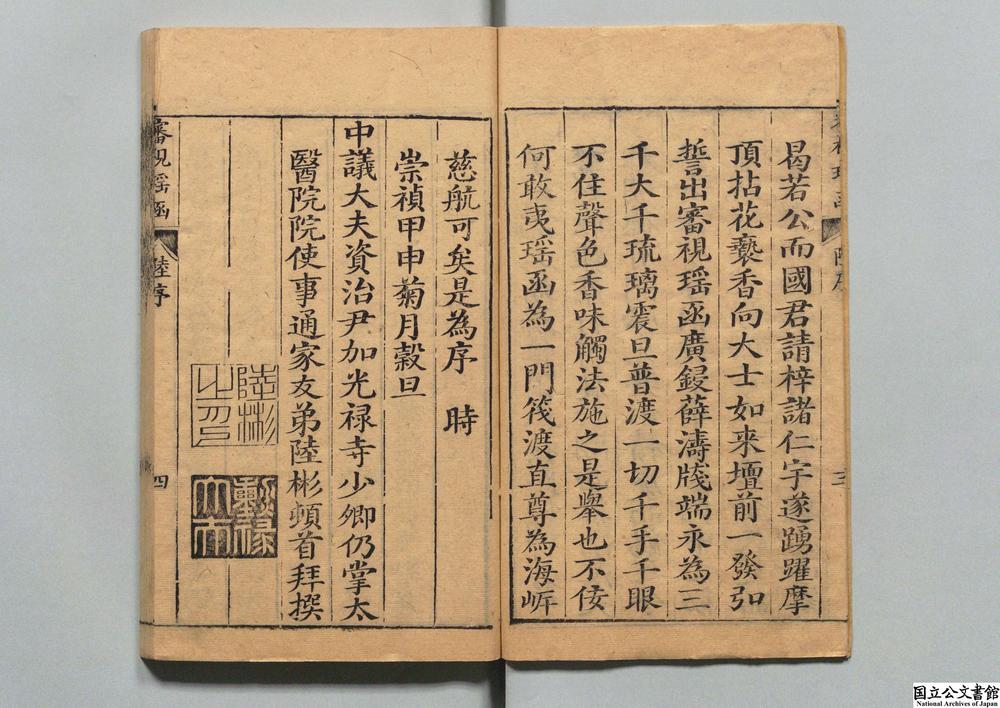 曷若公而國君請梓諸仁宇遂踴躍摩
頂拈花爇香向大士如来壇前一發弘
誓出審視瑶函廣鋟薛濤牋端永為三
千大千琉璃震旦普渡一切千手千眼
不住聲色香味觸法施之是舉也不佞
何敢夷瑶函為一門筏渡直尊為海㟁
慈航可矣是為序　時
崇禎甲申菊月穀旦
中議大夫資治尹加光禄寺少卿仍掌太
醫院院使事通家友弟陸彬頓首拜撰
陸彬
之印
審視瑶函
陸序
四
国立公文書館
National Archives of Japan